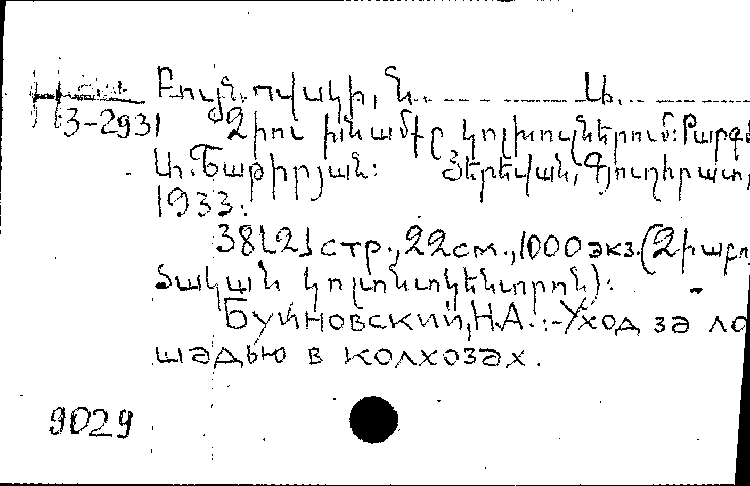 Բույնովսկի, Ն. Ա.
3-2931 Ձիու խնամքը կոլխոզներում: Թարգ
Ա. Շաթիրյան: Յերեվան, Գյուղհրատ,
1933.
38[2] стр., 22 см., 1000 экз. (Ձիաբու
ծական կոլտնտկենտրոն):
Буйновский, Н.А.:-Уход за ло
шадью в колхозах.
9029